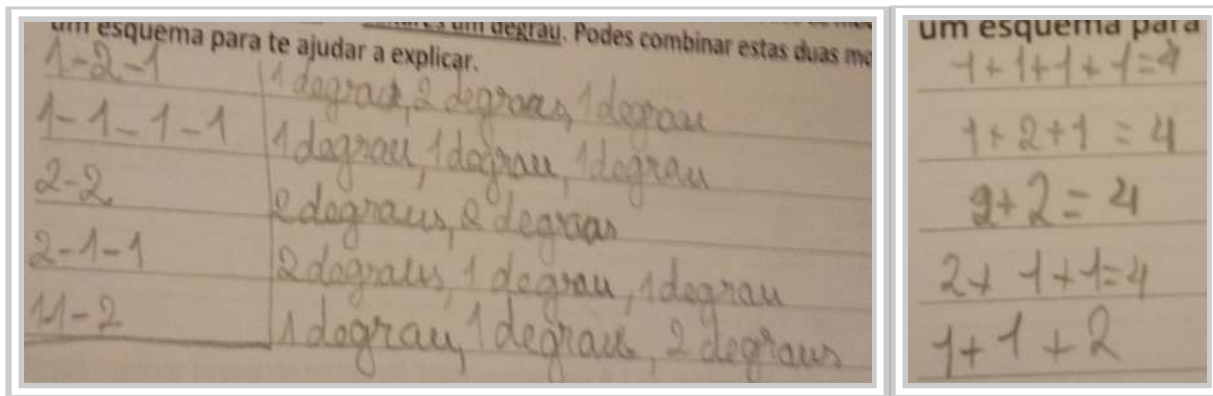 um degrau. Podes combinar estas duas mo
um esquema para te ajudar a explicar.
1-2-1 1 degrau, 2 degraus, 1 degrau
1-1-1-1 1 degrau, 1 degrau, 1 degrau
2-2 2 degraus, 2 degraus
2-1-1 2 degraus, 1 degrau, 1 degrau
11-2 1 degrau, 1 degrau, 2 degraus
um esquema para
1+1+1+1=4
1+2+1=4
2+2=4
2+1+1=4
1+1+2